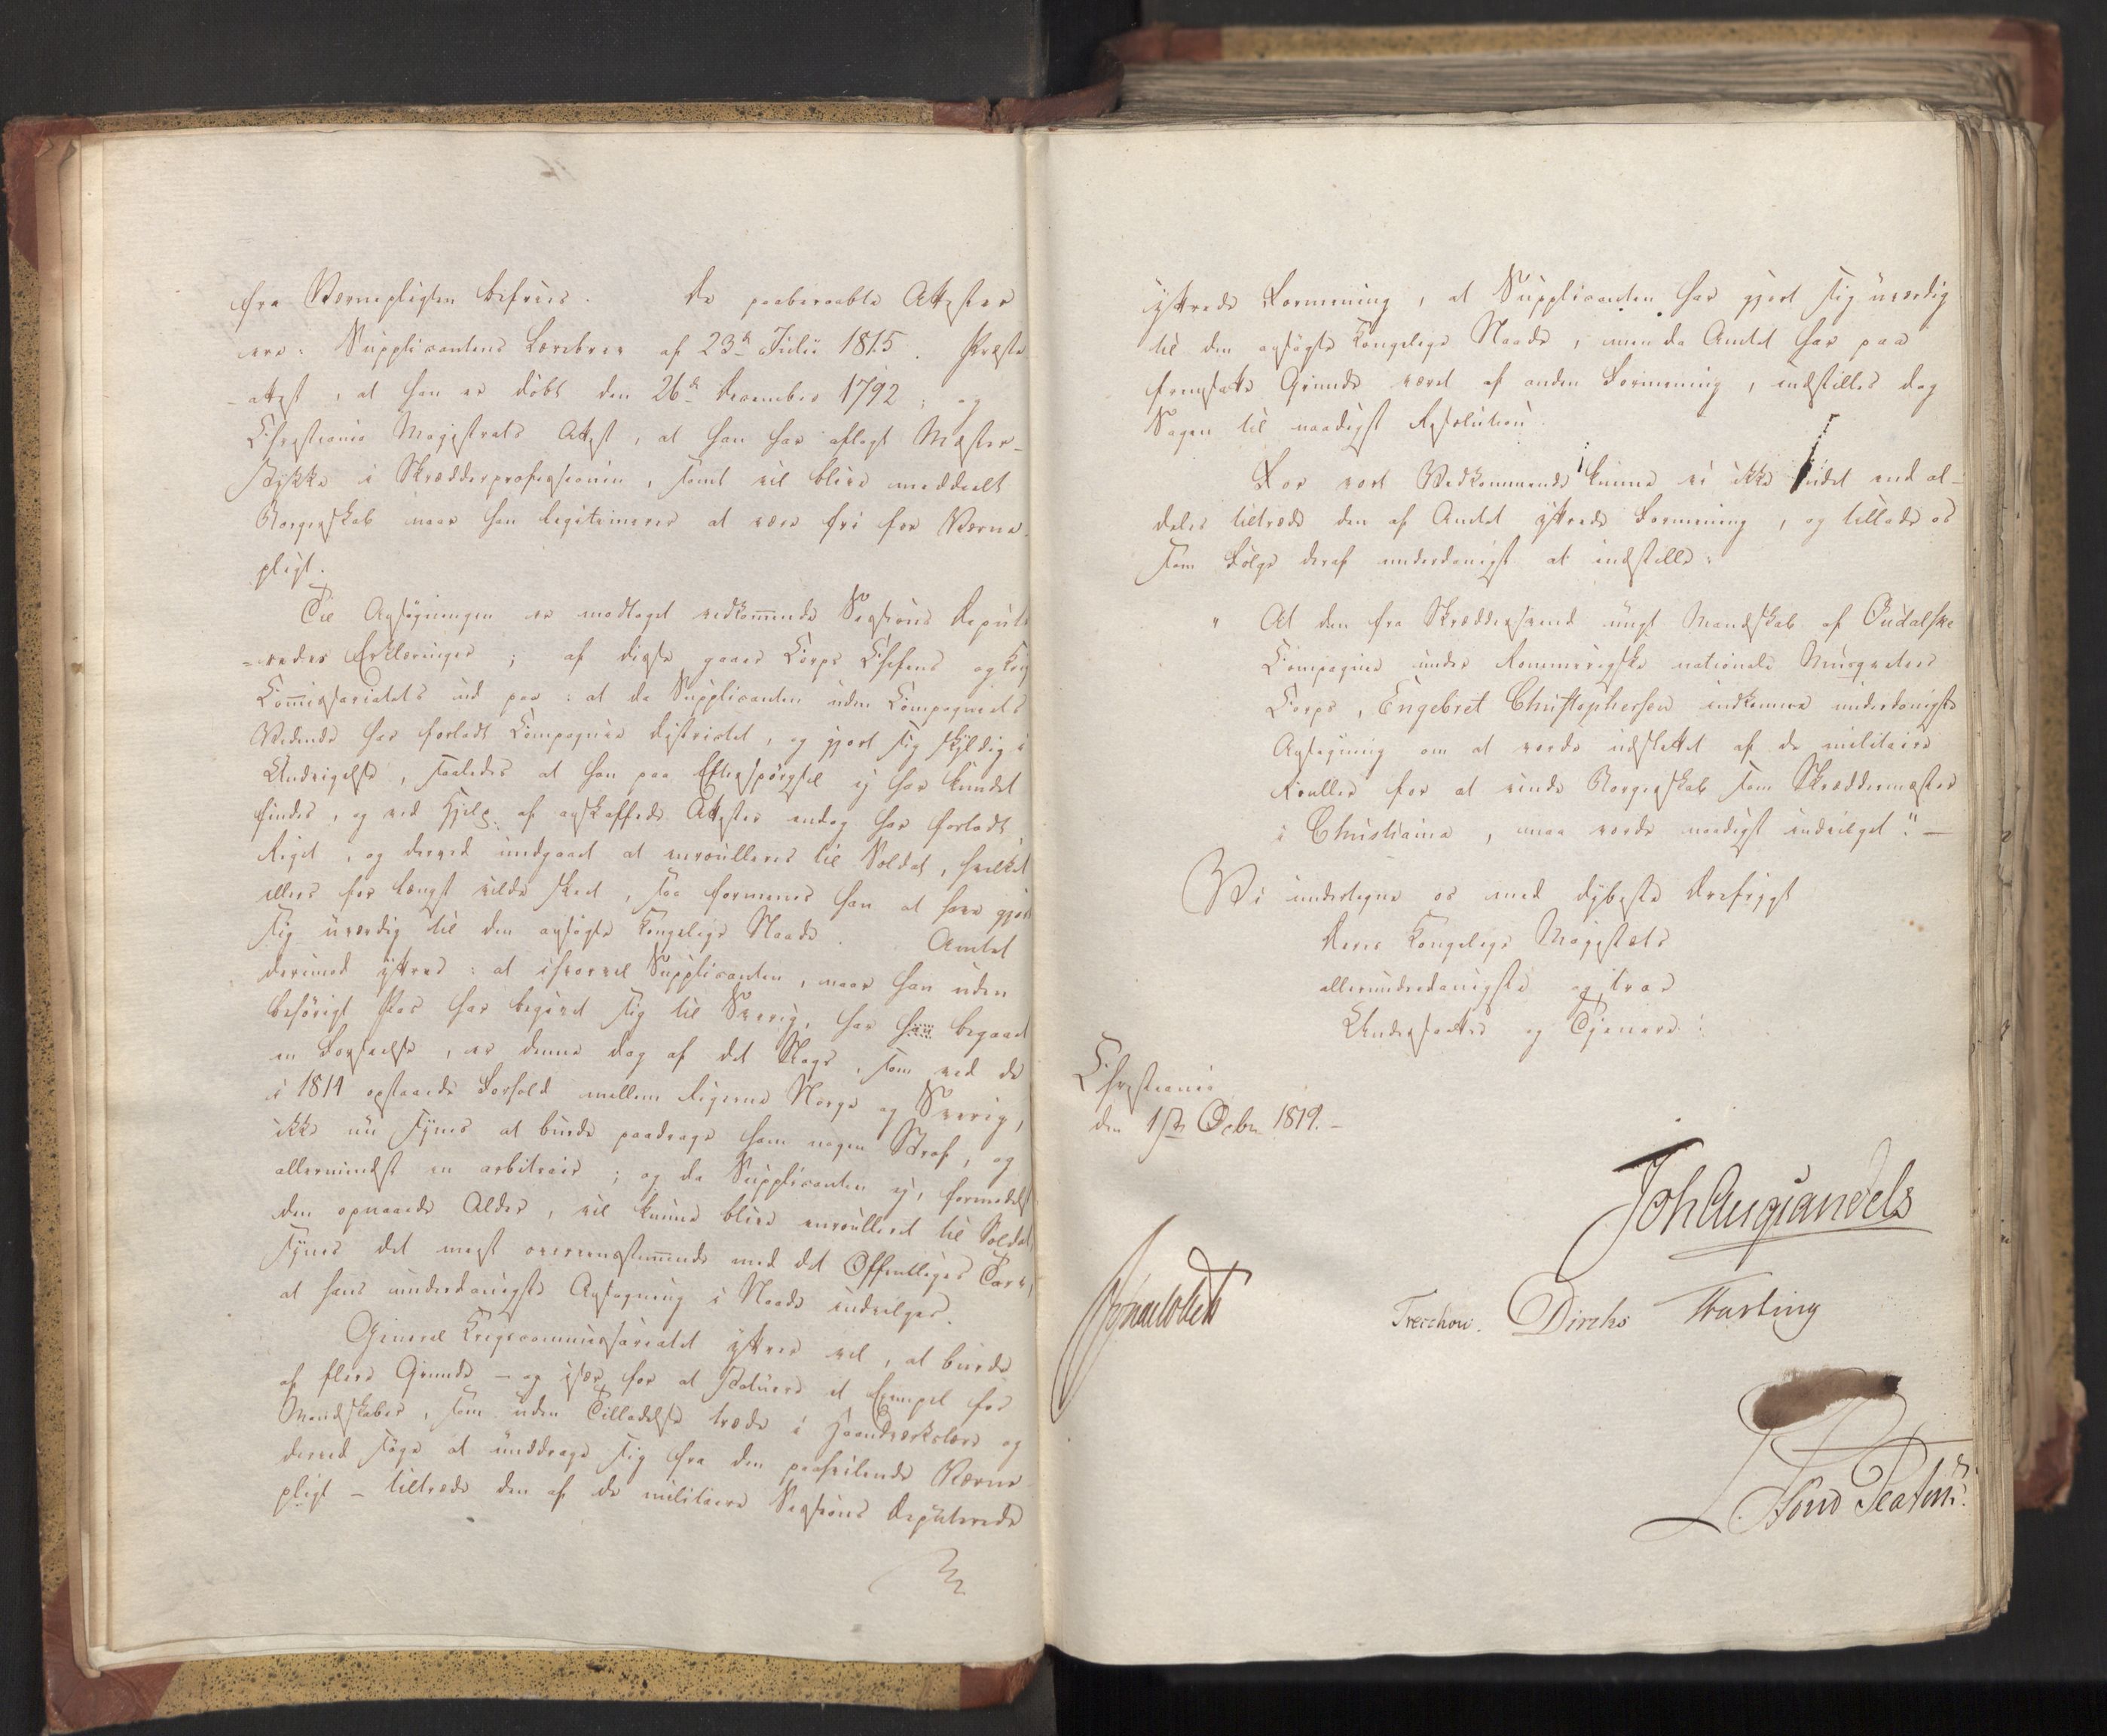 fra Værnepligten befries. De paaberaabte Attester
ere: Supplicantens Lærebrev af 23de Julii 1815. Præste
-attest, at han er døbt den 26de December 1792; og
Christiania Magistrats Attest, at han har aflagt Mester-
stykke i Skrædderprofessionen, samt vil blive meddeelt
Borgerskab naar han legitimerer at være fri for Værne-
pligt.
Til Ansøgningen er modtaget vedkommende Sessions Depute
=eredes Erklæringer; af disse gaaer Corps Chefens og Krigs
Commissariatets ud paa: at da Supplicanten uden Compagniets
Vidende har forladt Compagnie Districtet, og gjort sig skyldig i
Undvigelse, saaledes at han paa Efterspørgsel ej har kundet
findes, og ved Hjelp af anskaffede Attester endog har forladt
Riget, og derved undgaaet at enroulleres til Soldat, hvilket
ellers for længst vilde skeet, saa formenes han at have gjort
sig uværdig til den ansøgte Kongelige Naade. Amtet
derimod yttrer: at ihvorvel Supplicanten, naar han uden
behørigt Pas har begivet sig til Sverig, har han begaaet
en Forseelse, er denne dog af det Slags, som ved de
i 1814 opstaaede Forhold mellem Rigerne Norge og Sverig,
ikke nu synes at burde paadrage ham nogen Straf, og
allermindst en arbitrair; og da Supplicanten ej, formedelst
den opnaaede Alder, vil kunne blive enroulleret til Soldat,
synes det meest overeensstemmende med det Offentliges Tarv,
at hans underdanigste Ansøgning i Naade indvilges.
General Krigscommissariatet yttrer vel, at burde
af flere Grunde – og især for at statuere et Exempel for
Mandskaber, som uden Tilladelse træde i Haandværkslære og
derved søge at unddrage sig fra den paahvilende Værne
pligt – tiltræde den af de militaire Sessions Deputerede
yttrede Formening, at Supplicanten har gjort sig uværdig
til den ansøgte Kongelige Naade, men da Amtet har paa
fremsatte Grunde været af anden Formening, indstilles dog
Sagen til naadigst Resolution.
For vort Vedkommende kunne vi ikke andet end al-
deles tiltræde den af Amtet yttrede Formening, og tillade os
som Følge deraf underdanigst at indstille:
" At den fra Skræddersvend ungt Mandskab af Oudalske
Compagnie under Rommerigske nationale Musqueteer
Corps, Engebret Christophersen indkomne underdanigste
Ansøgning om at vorde udslettet af de militaire
Rouller for at vinde Borgerskab som Skræddermester
i Christiania, maa vorde naadigst indvilget." –
Vi undertegne os med dybeste Ærefrygt
Deres Kongelige Majestæts
allerunderdanigste og troe
Undersaatter og Tjenere:
Christiania
den 1ste Octbr 1819. –
Joh Aug Sandels
Treschow. Diriks Fasting